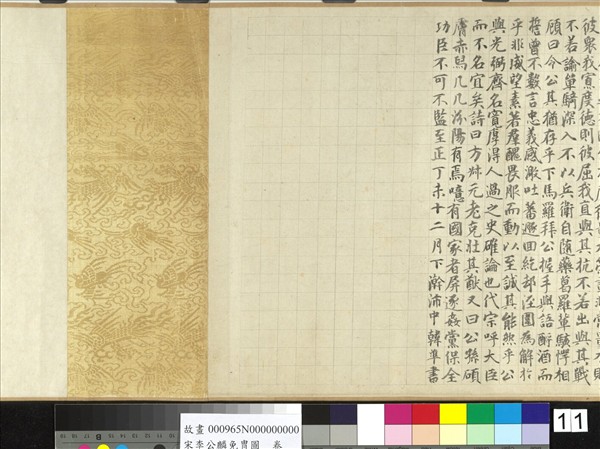 彼衆我寡度德則彼屈我直與其抗不若出與其戰
不若論單騎深入不以兵衛自隨藥葛羅輩駭愕相
顧曰令公其猶存乎下馬羅拜公握手與語酹酒而
誓曾不數言忠義感激吐蕃遁回紇却涇圍為解於
乎非威望素著羣醜畏服而動以至誠其能然乎公
與光弼齊名寬厚得人過之史確論也代宗呼大臣
而不名宜矣詩曰方叔元老克壯其猷又曰公孫碩
膚赤舄几几汾陽有焉噫有國家者屏逐姦黨保全
功臣不可不監至正丁未十二月下澣沛中韓準書
故畫 000965N000000000
宋李公麟免冑圖 卷
11